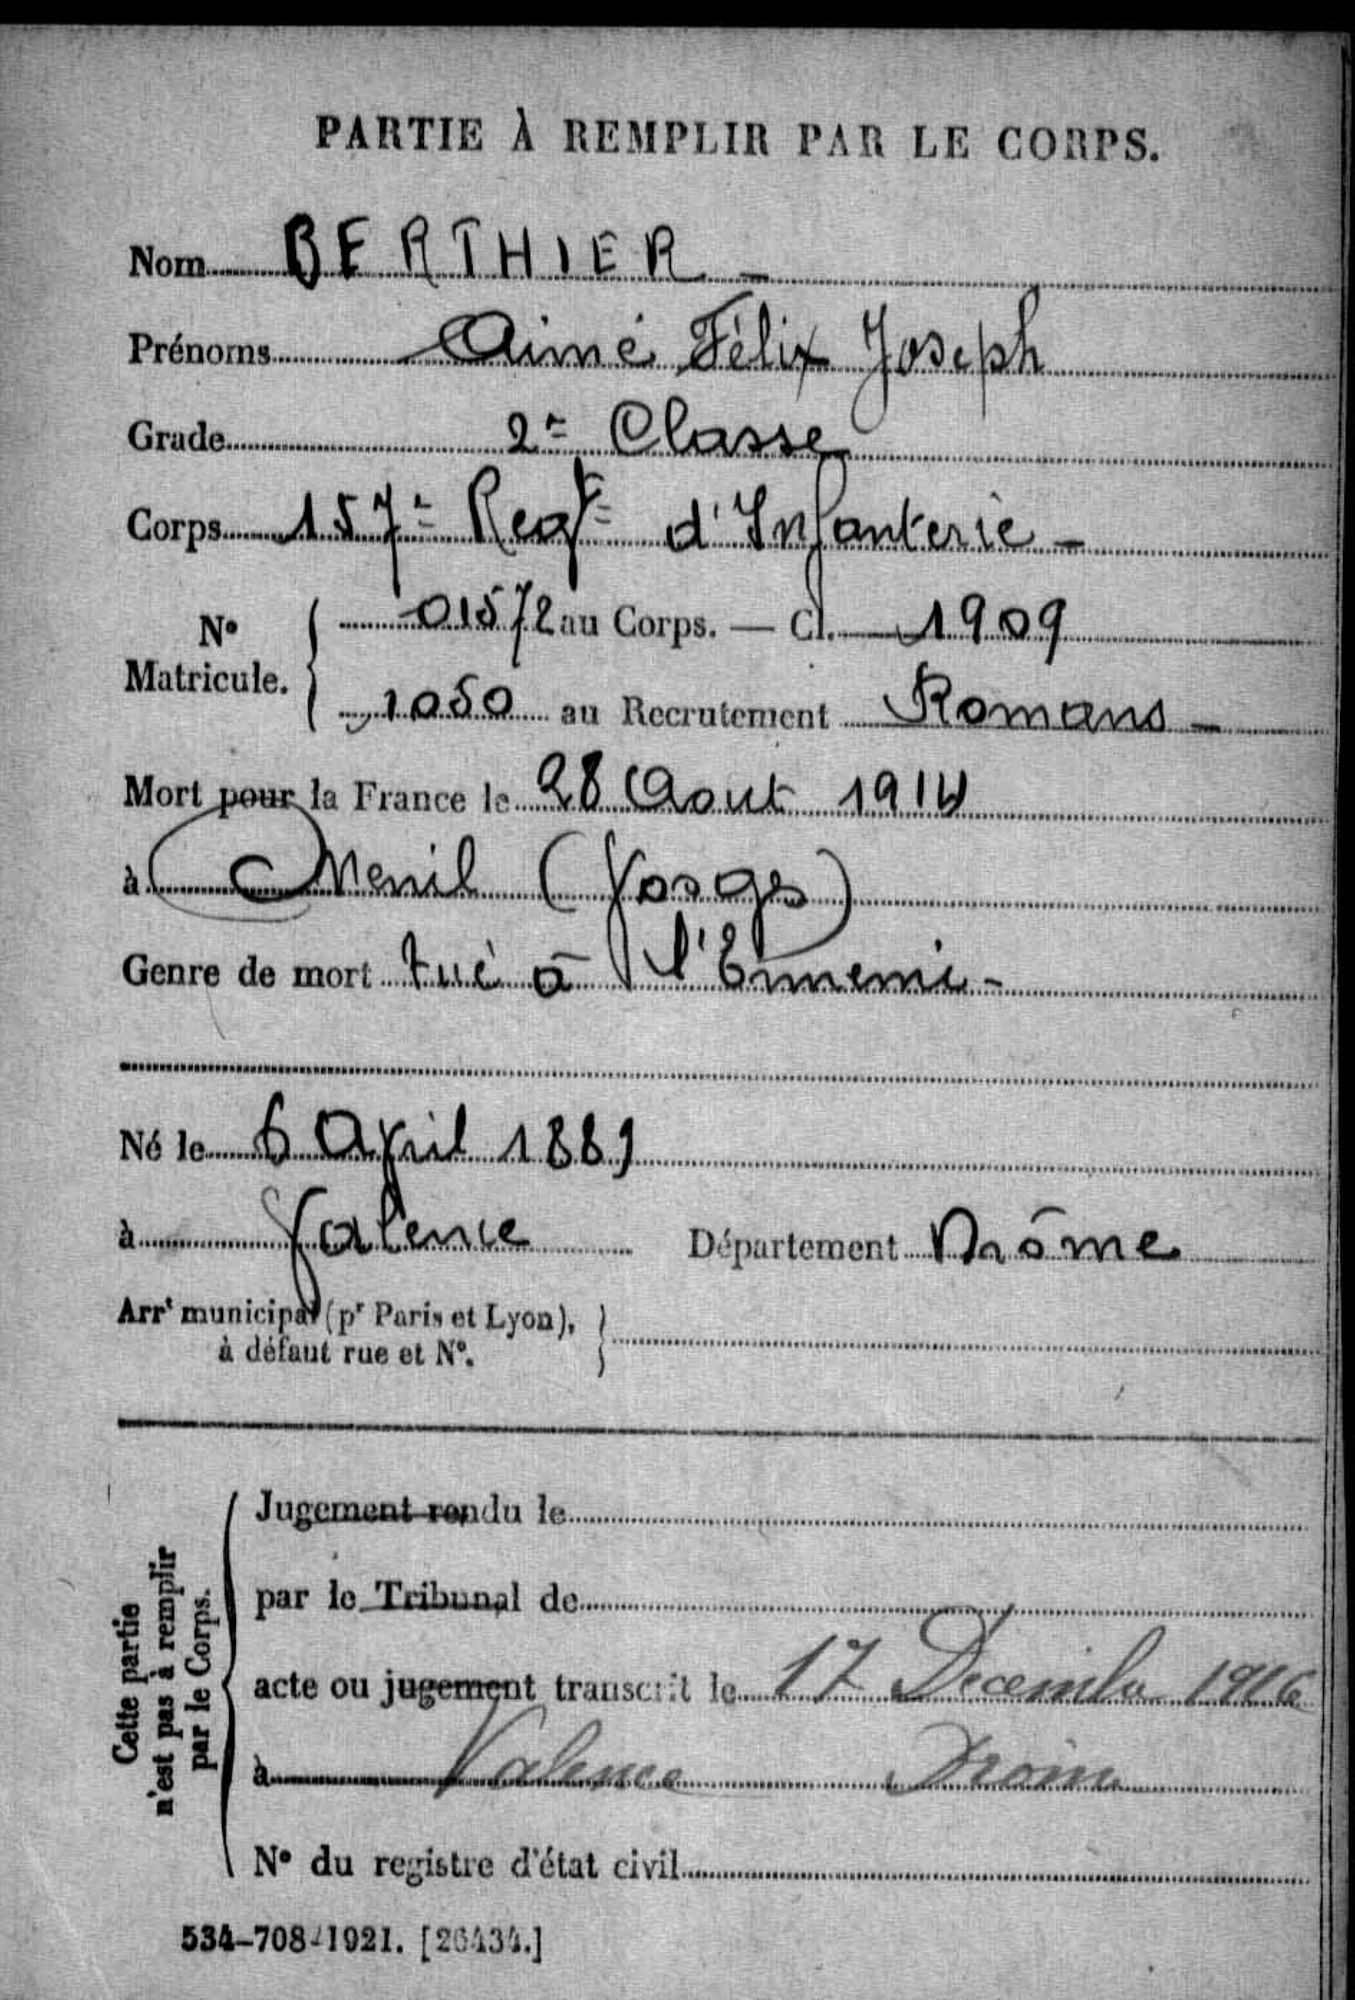 PARTIE À REMPLIR PAR LE CORPS.
Nom BERTHIER -
Prénoms Aimé Félix Joseph
Grade 2e Classe
Corps 157e Regt d'Infanterie -
No Matricule. 01572 au Corps. — Cl. 1909
1050 au Recrutement Romans -
Mort pour la France le 28 Aout 1914
à Menil (Vosges)
Genre de mort tué à l'Ennemi -
Né le 6 Avril 1889
à Valence Département Drôme
Arrt municipal (pr Paris et Lyon),
à défaut rue et No.
Cette partie
n'est pas à remplir
par le Corps.
Jugement rendu le
par le Tribunal de
acte ou jugement transcrit le 17 Decembre 1916
à Valence Drôme
No du registre d'état civil
534-708-1921. [26434.]